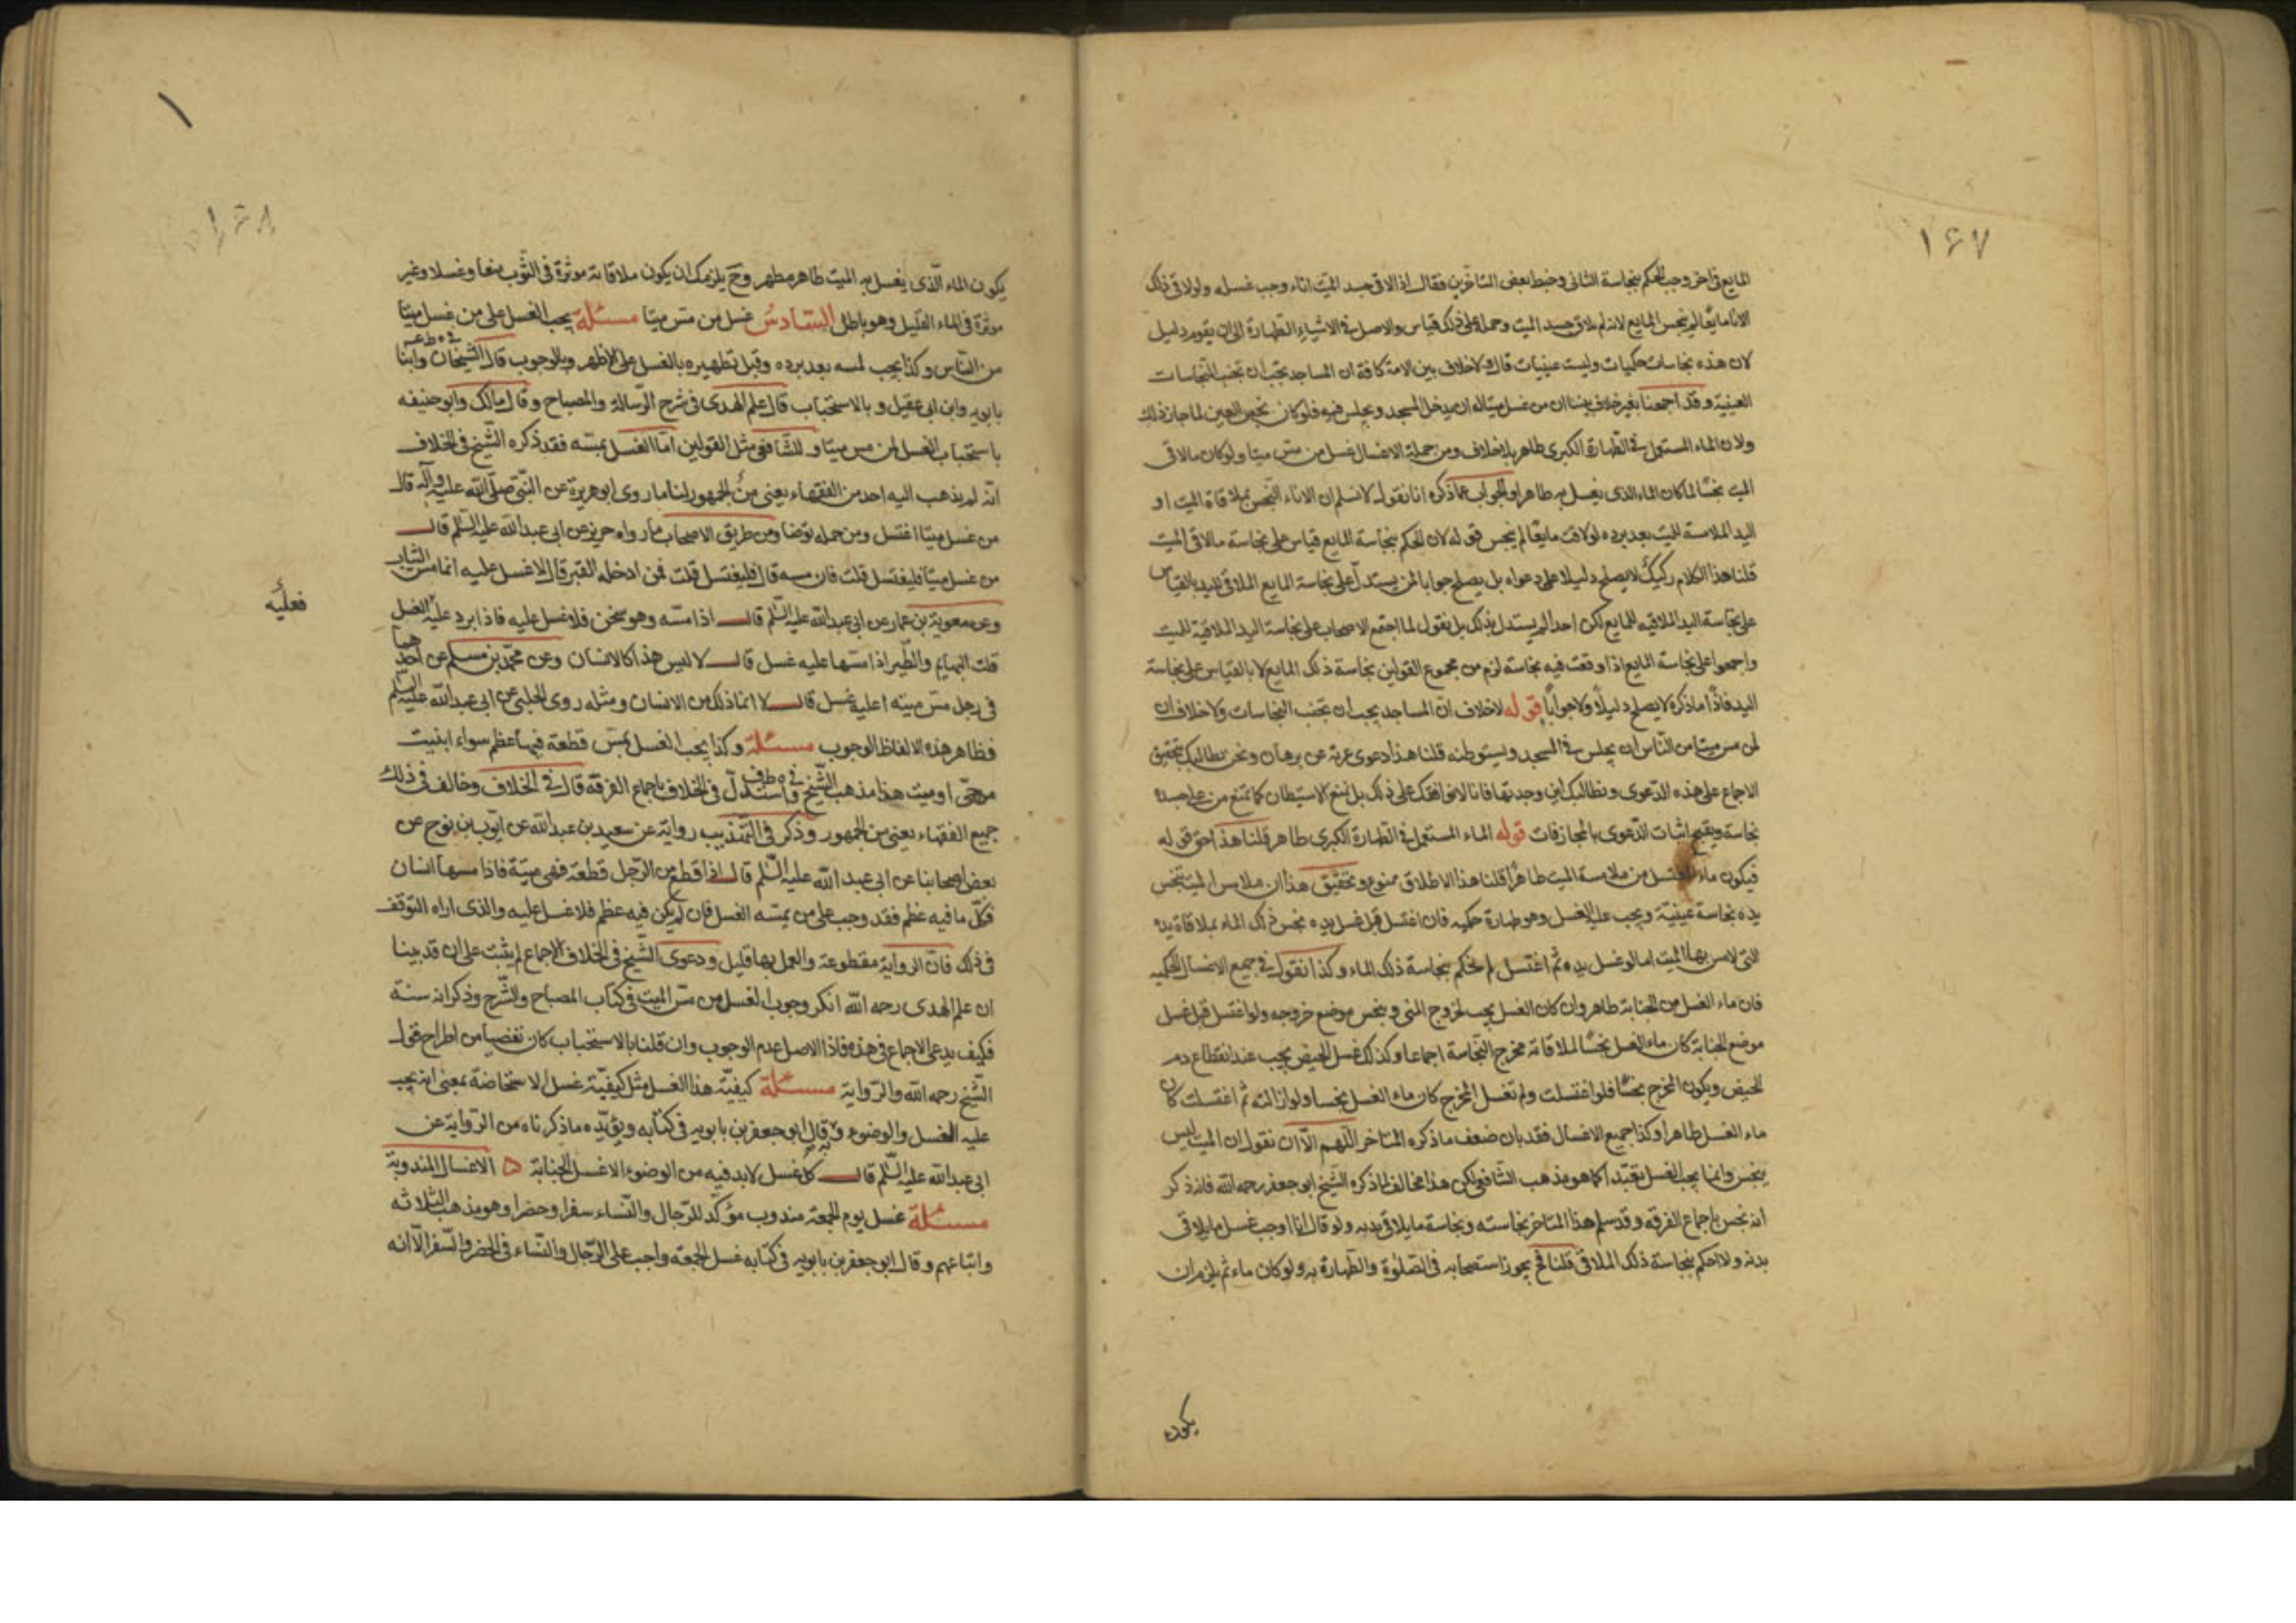 ١٦٧
المايع فى اخر وجب الحكم بنجاسة الثانى وخبط بعض المتاخرين فقال اذا لاقى جسد الميت اناء وجب غسله ولو لاقى ذلك
الاناء مايعا لم ينجس المايع لانه لم يلاق جسد الميت وحمله على ذلك قياس والاصل فى الاشياء الطهارة الى ان يقوم دليل
لان هذه نجاسات حكميات وليست عينيات قال ولا خلاف بين الامة كافة ان المساجد يجب ان تجنب النجاسات
العينية وقد اجمعنا بغير خلاف بيننا ان من غسل ميتا له ان يدخل المسجد ويجلس فيه فلو كان نجس العين لما جاز ذلك
ولان الماء المستعمل فى الطهارة الكبرى طاهر بلا خلاف ومن جملة الاغسال غسل من مس ميتا ولو كان مالاقى
الميت نجسا لما كان الماء الذى يغسل به طاهرا والجواب عما ذكره انا نقول لا نسلم ان الاناء النجس بملاقاة الميت او
اليد الملامسة للميت بعد برده لو لاقت مايعا لم ينجس قوله لان الحكم بنجاسة المايع قياس على نجاسة مالاقى الميت
قلنا هذا الكلام ركيك لا يصلح دليلا على دعواه بل يصلح جوابا لمن يستدل على نجاسة المايع الملاقى لليد بالقياس
على نجاسة اليد الملاقيه للمايع لكن احدا لم يستدل بذلك بل نقول لما اجتمع الاصحاب على نجاسة اليد الملاقية للميت
واجمعوا على نجاسة المايع اذا وقعت فيه نجاسة لزم من مجموع القولين نجاسة ذلك المايع لا بالقياس على نجاسة
اليد فاذًا ما ذكره لا يصلح دليلًا ولا جوابًا قوله لا خلاف ان المساجد يجب ان تجنب النجاسات ولا خلاف ان
لمن مس ميتا من الناس ان يجلس فى المسجد ويستوطنه قلنا هذا دعوى عرية عن برهان ونحن نطالبك بتحقيق
الاجماع على هذه الدعوى ونطالبك اين وجدتها فانا لا نوافقك على ذلك بل نمنع الاستيطان كما نمنع من على جسده
نجاسة ويقبح اثبات الدعوى بالمجازفات قوله الماء المستعمل فى الطهارة الكبرى طاهر قلنا هذا حق قوله
فيكون ماء المغتسل من ملامسة الميت طاهرا قلنا هذا الاطلاق ممنوع وتحقيق هذا ان ملامس الميت تنجس
يده نجاسة عينية ويجب عليه الغسل وهو طهارة حكميه فان اغتسل قبل غسل يده نجس ذلك الماء بملاقاة يده
التى لامس بها الميت اما لو غسل يده ثم اغتسل لم نحكم بنجاسة ذلك الماء وكذا نقول فى جميع الاغسال الحكميه
فان ماء الغسل من الجنابة طاهر وان كان الغسل يجب لخروج المنى وينجس موضع خروجه ولو اغتسل قبل غسل
موضع الجنابة كان ماء الغسل نجسا لملاقاته مخرج النجاسة اجماعا وكذلك غسل الحيض يجب عند انقطاع دم
الحيض ويكون المخرج نجسا فلو اغتسلت ولم تغسل المخرج كان ماء الغسل نجسا ولو ازالته ثم اغتسلت كان
ماء الغسل طاهرا وكذا جميع الاغسال فقد بان ضعف ما ذكره المتاخر اللهم الا ان نقول ان الميت ليس
ينجس وانما يجب الغسل تعبدا كما هو مذهب الشافعى لكن هذا مخالف لما ذكره الشيخ ابو جعفر رحمه الله فانه ذكر
انه نجس باجماع الفرقه وقد سلم هذا المتاخر نجاسته ونجاسة ما يلاقى بدنه ولو قال انا اوجب غسل ما يلاقى
بدنه ولا احكم بنجاسة ذلك الملاقى قلنا فح يجوز استصحابه فى الصلوة والطهارة به ولو كان ماء ثم يلزم ان
يكون
١
١٦٨
يكون الماء الذى يغسل به الميت طاهر مطهر وح يلزمك ان يكون ملاقاته موثرة فى الثوب منعا وغسلا وغير
موثرة فى الماء القليل وهو باطل السادس غسل من مس ميتا مسئلة يجب الغسل على من غسل ميتا
من الناس وكذا يجب لمسه بعد برده وقبل تطهيره بالغسل على الاظهر وبالوجوب قال الشيخان وابنا
بابويه وابن ابى عقيل وبالاستحباب قال علم الهدى فى شرح الرسالة والمصباح وقال مالك وابو حنيفه
باستحباب الغسل لمن مس ميتا وللشافعى مثل القولين اما الغسل بمسه فقد ذكره الشيخ فى الخلاف
انه لم يذهب اليه احد من الفقهاء يعنى من الجمهور لنا ما روى ابو هريرة عن النبى صلى الله عليه وآله قال
من غسل ميتا اغتسل ومن حمله توضا ومن طريق الاصحاب ما رواه حريز عن ابى عبد الله عليه السلم قال
من غسل ميتا فليغتسل قلت فان مسه قال فليغتسل قلت فمن ادخله القبر قال لا غسل عليه انما مس الثياب
وعن معوية بن عمار عن ابى عبد الله عليه السلم قال اذا مسه وهو سخن فلا غسل عليه فاذا برد عليه الغسل
فعليه
قلت البهايم والطير اذا مسها عليه غسل قال لا ليس هذا كالانسان وعن محمد بن مسلم عن احدهما
فى رجل مس ميته اعليه غسل قال لا انما ذلك من الانسان ومثله روى الحلبى عن ابى عبد الله عليه السلم
فظاهر هذه الالفاظ الوجوب مسئلة وكذا يجب الغسل بمس قطعة فيها عظم سواء ابنيت
من حى او ميت هذا مذهب الشيخ فى ه ط ف واستدل فى الخلاف باجماع الفرقه قال فى الخلاف وخالف فى ذلك
جميع الفقهاء يعنى من الجمهور وذكر فى التهذيب رواية عن سعيد بن عبد الله عن ايوب بن نوح عن
بعض اصحابنا عن ابى عبد الله عليه السلم قال اذا قطع من الرجل قطعة فهى ميتة فاذا مسها انسان
فكل ما فيه عظم فقد وجب على من يمسه الغسل فان لم يكن فيه عظم فلا غسل عليه والذى اراه التوقف
فى ذلك فان الرواية مقطوعة والعمل بها قليل ودعوى الشيخ فى الخلاف الاجماع لم يثبت على ان قد بينا
ان علم الهدى رحمه الله انكر وجوب الغسل من مس الميت فى كتاب المصباح والشرح وذكر انه سنة
فكيف يدعى الاجماع فى هذه فاذا الاصل عدم الوجوب وان قلنا بالاستحباب كان تفصيا من اطراح قول
الشيخ رحمه الله والرواية مسئلة كيفية هذا الغسل مثل كيفية غسل الاستحاضة بمعنى انه يجب
عليه الغسل والوضوء وبه قال ابو جعفر بن بابويه فى كتابه ويؤيده ما ذكرناه من الرواية عن
ابى عبد الله عليه السلم قال كل غسل لابد فيه من الوضوء الا غسل الجنابة الاغسال المندوبة
مسئلة غسل يوم الجمعة مندوب موكد للرجال والنساء سفرا وحضرا وهو مذهب الثلاثه
واتباعهم وقال ابو جعفر بن بابويه فى كتابه غسل الجمعه واجب على الرجال والنساء فى الحضر والسفر الا انه